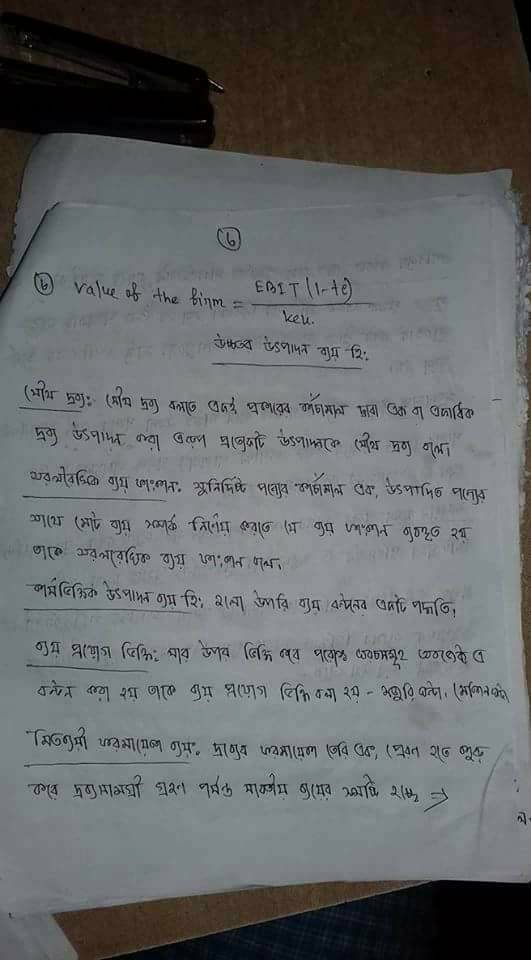 (b)
(b) Value of the firm = EBIT (1-te) / keu.
উচ্চতর উৎপাদন ব্যয় হি:
যৌথ দ্রব্য: যৌথ দ্রব্য বলতে একই প্রকারের কাঁচামাল দ্বারা এক বা একাধিক
দ্রব্য উৎপাদন করা এরূপ প্রত্যেকটি উৎপাদনকে যৌথ দ্রব্য বলে।
সরলরৈখিক ব্যয় ফাংশন: সুনির্দিষ্ট পণ্যের কাঁচামাল এবং উৎপাদিত পণ্যের
সাথে মোট ব্যয় সম্পর্ক নির্ণয় করতে যে ব্যয় ফাংশন ব্যবহৃত হয়
তাকে সরলরৈখিক ব্যয় ফাংশন বলে।
কার্যভিত্তিক উৎপাদন ব্যয় হি: হলো উপরি ব্যয় বন্টনের একটি পদ্ধতি,
ব্যয় প্রয়োগ ভিত্তি: যার উপর ভিত্তি করে পরোক্ষ
বন্টন করা হয় তাকে ব্যয় প্রয়োগ ভিত্তি বলা হয় - মজুরি ঘন্টা, মেশিন ঘন্টা
মিতব্যয়ী ফরমায়েশ ব্যয়: দ্রব্যের ফরমায়েশ তৈরি এবং প্রেরণ হতে শুরু
করে দ্রব্যসামগ্রী গ্রহণ পর্যন্ত যাবতীয় ব্যয়ের সমষ্টি হচ্ছে ⇒